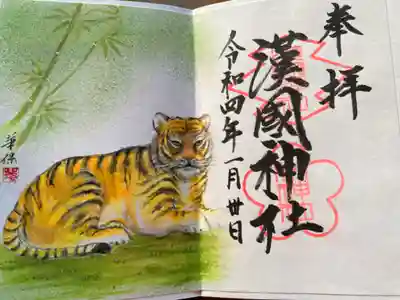 奉拝
漢國神社
令和四年一月廿日
華保